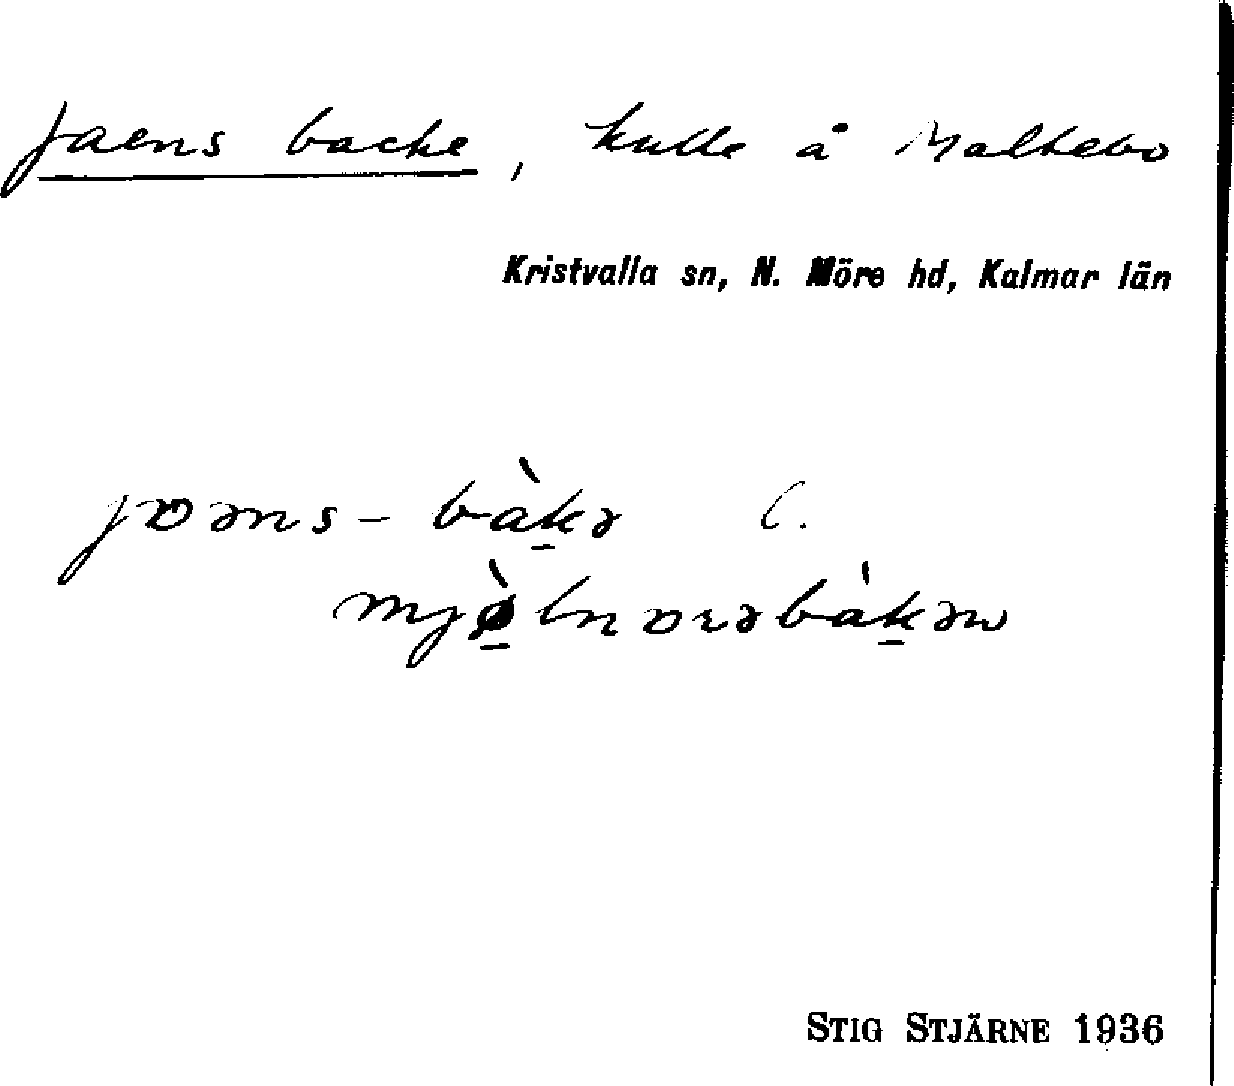 Jaens backe, kulle å Malkebo
Kristvalla sn, N. Möre hd, Kalmar län
jɒəns - bàkə l.
mjø̀lnɒrəbàkən
STIG STJÄRNE 1936